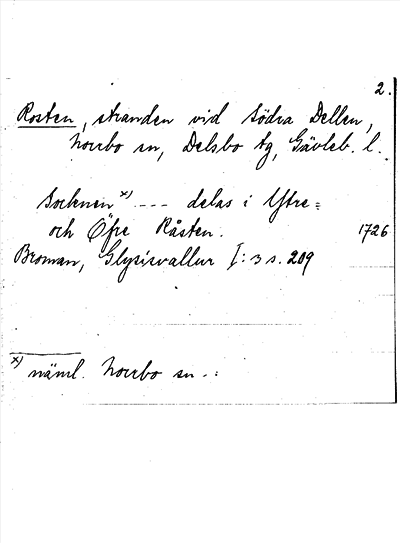 2.
Rosten, stranden vid Södra Dellen,
Norrbo sn, Delsbo tg, Gävleb. l.
Socknen x) --- delas i Ytre=
och Öfre Råsten. 1726
Broman, Glysisvallur I:3 s. 209
x) näml. Norrbo sn.